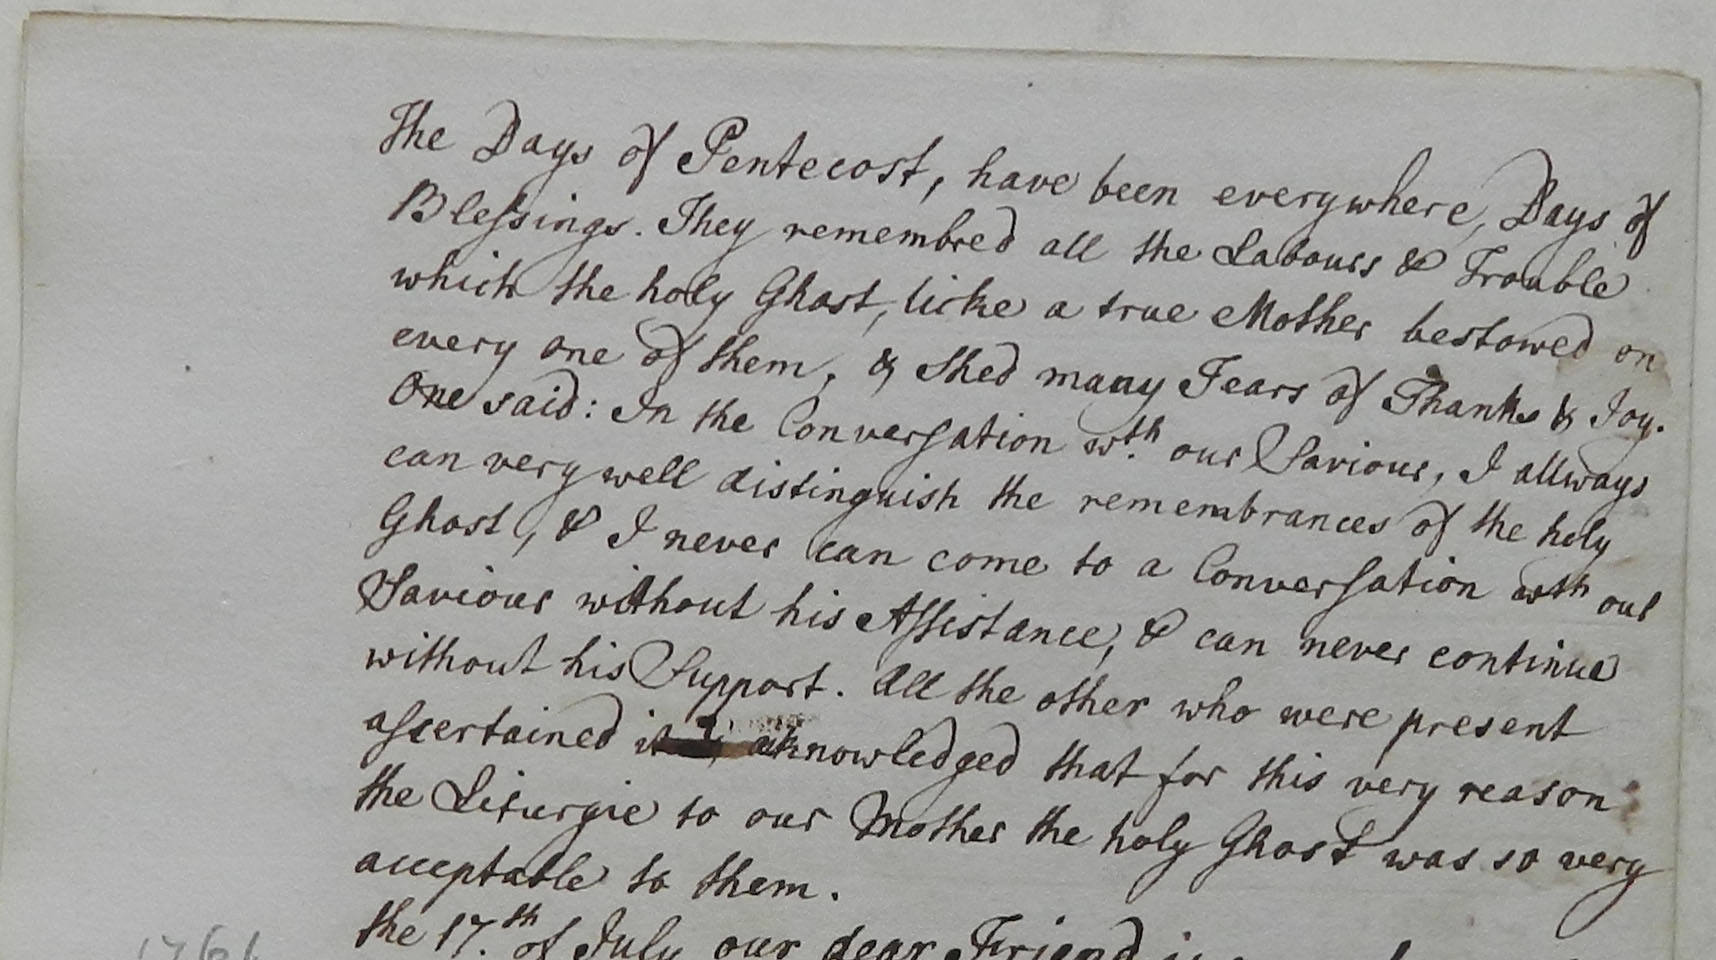 The Days of Pentecost, have been everywhere, Days of
Blessings. They remembred all the Labours & Trouble
which the holy Ghost, licke a true Mother bestowed on
every one of them, & shed many Tears of Thanks & Joy.
One said: In the Conversation wth. our Saviour, I allways
can very well distinguish the remembrances of the holy
Ghost, & I never can come to a Conversation wth our
Saviour without his Assistance, & can never continue
without his Support. All the other who were present
assertained it aknowledged that for this very reason
the Liturgie to our Mother the holy Ghost was so very
acceptable to them.
the 17.th of July our dear Friend
1761